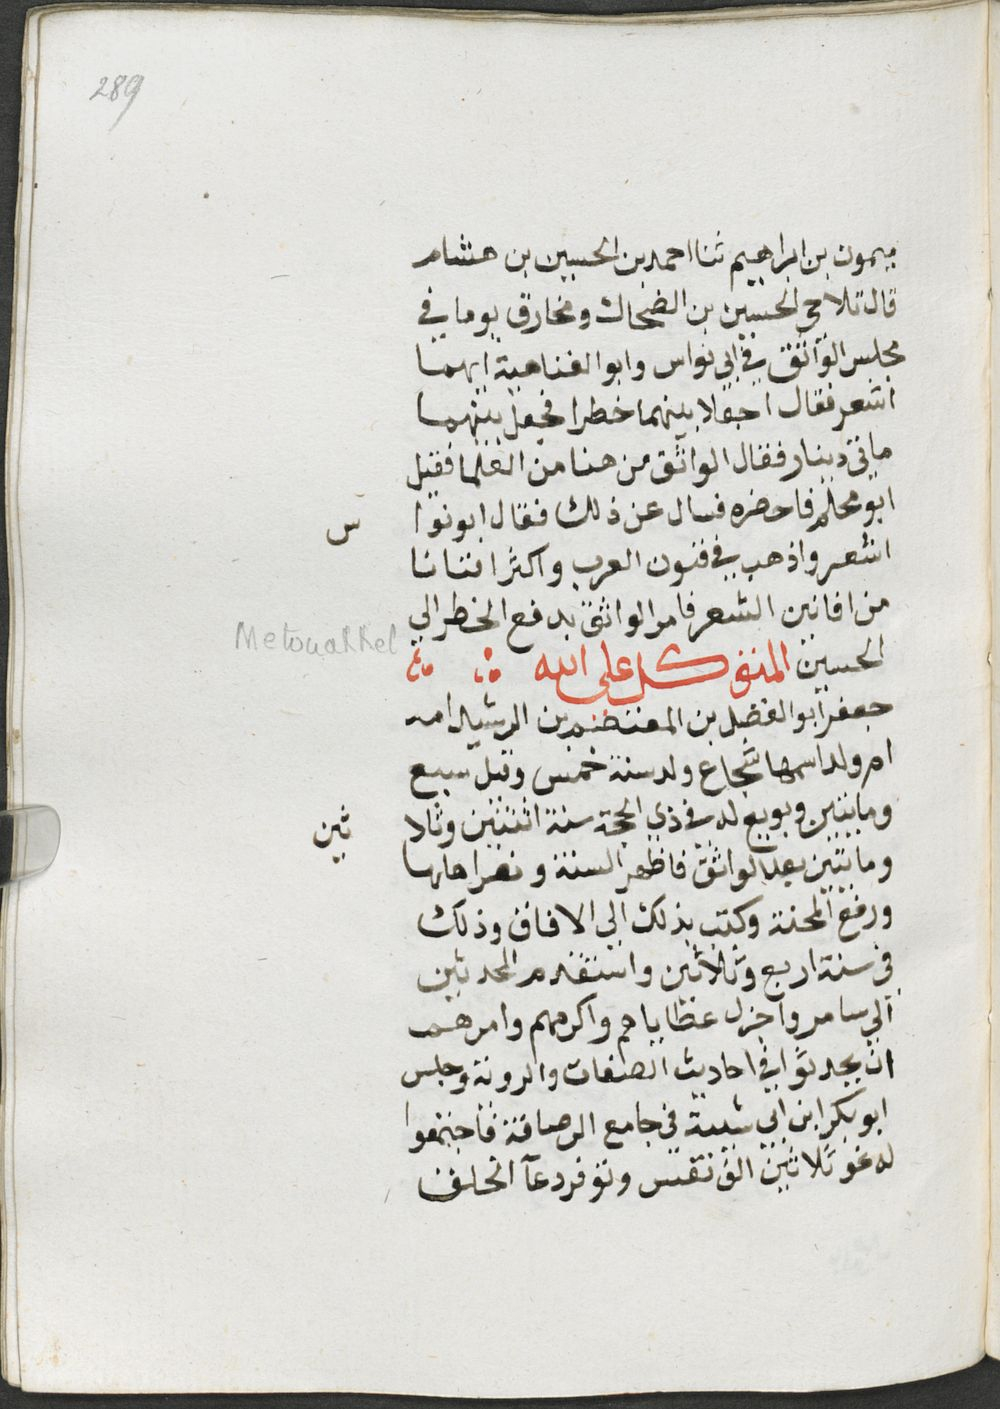 289
ميمون بن ابراهيم ثنا احمد بن الحسين بن هشام
قال تلاحى الحسين بن الضحاك ومخارق يوما في
مجلس الواثق في ابي نواس وابو العتاهية ايهما
اشعر فقال اجعلا بينهما خطرا فجعل بينهما
مائتي دينار فقال الواثق من هنا من العلما فقيل
ابو محلم فاحضره فسال عن ذلك فقال ابو نوا س
اشعر واذهب في فنون العرب واكثر افتنانا
من افانين الشعر فامر الواثق بدفع الخطر الي
الحسين المتوكل على الله
Metouakkel
جعفر ابو الفضل بن المعتصم بن الرشيد امه
ام ولد اسمها شجاع ولد سنة خمس وقيل سبع
ومايتين وبويع له في ذي الحجة سنة اثنتين وثلا ثين
ومايتين بعد الواثق فاظهر السنة ونصر اهلها
ورفع المحنة وكتب بذلك الي الافاق وذلك
في سنة اربع وثلاثين واستقدم المحدثين
الي سامرا واجزل عطاياهم واكرمهم وامرهم
ان يحدثوا في احاديث الصفات والروية وجلس
ابو بكر ابن ابي شيبة في جامع الرصافة فاجتمعوا
له نحو ثلاثين الف نفس وتوفر دعآ الخلق